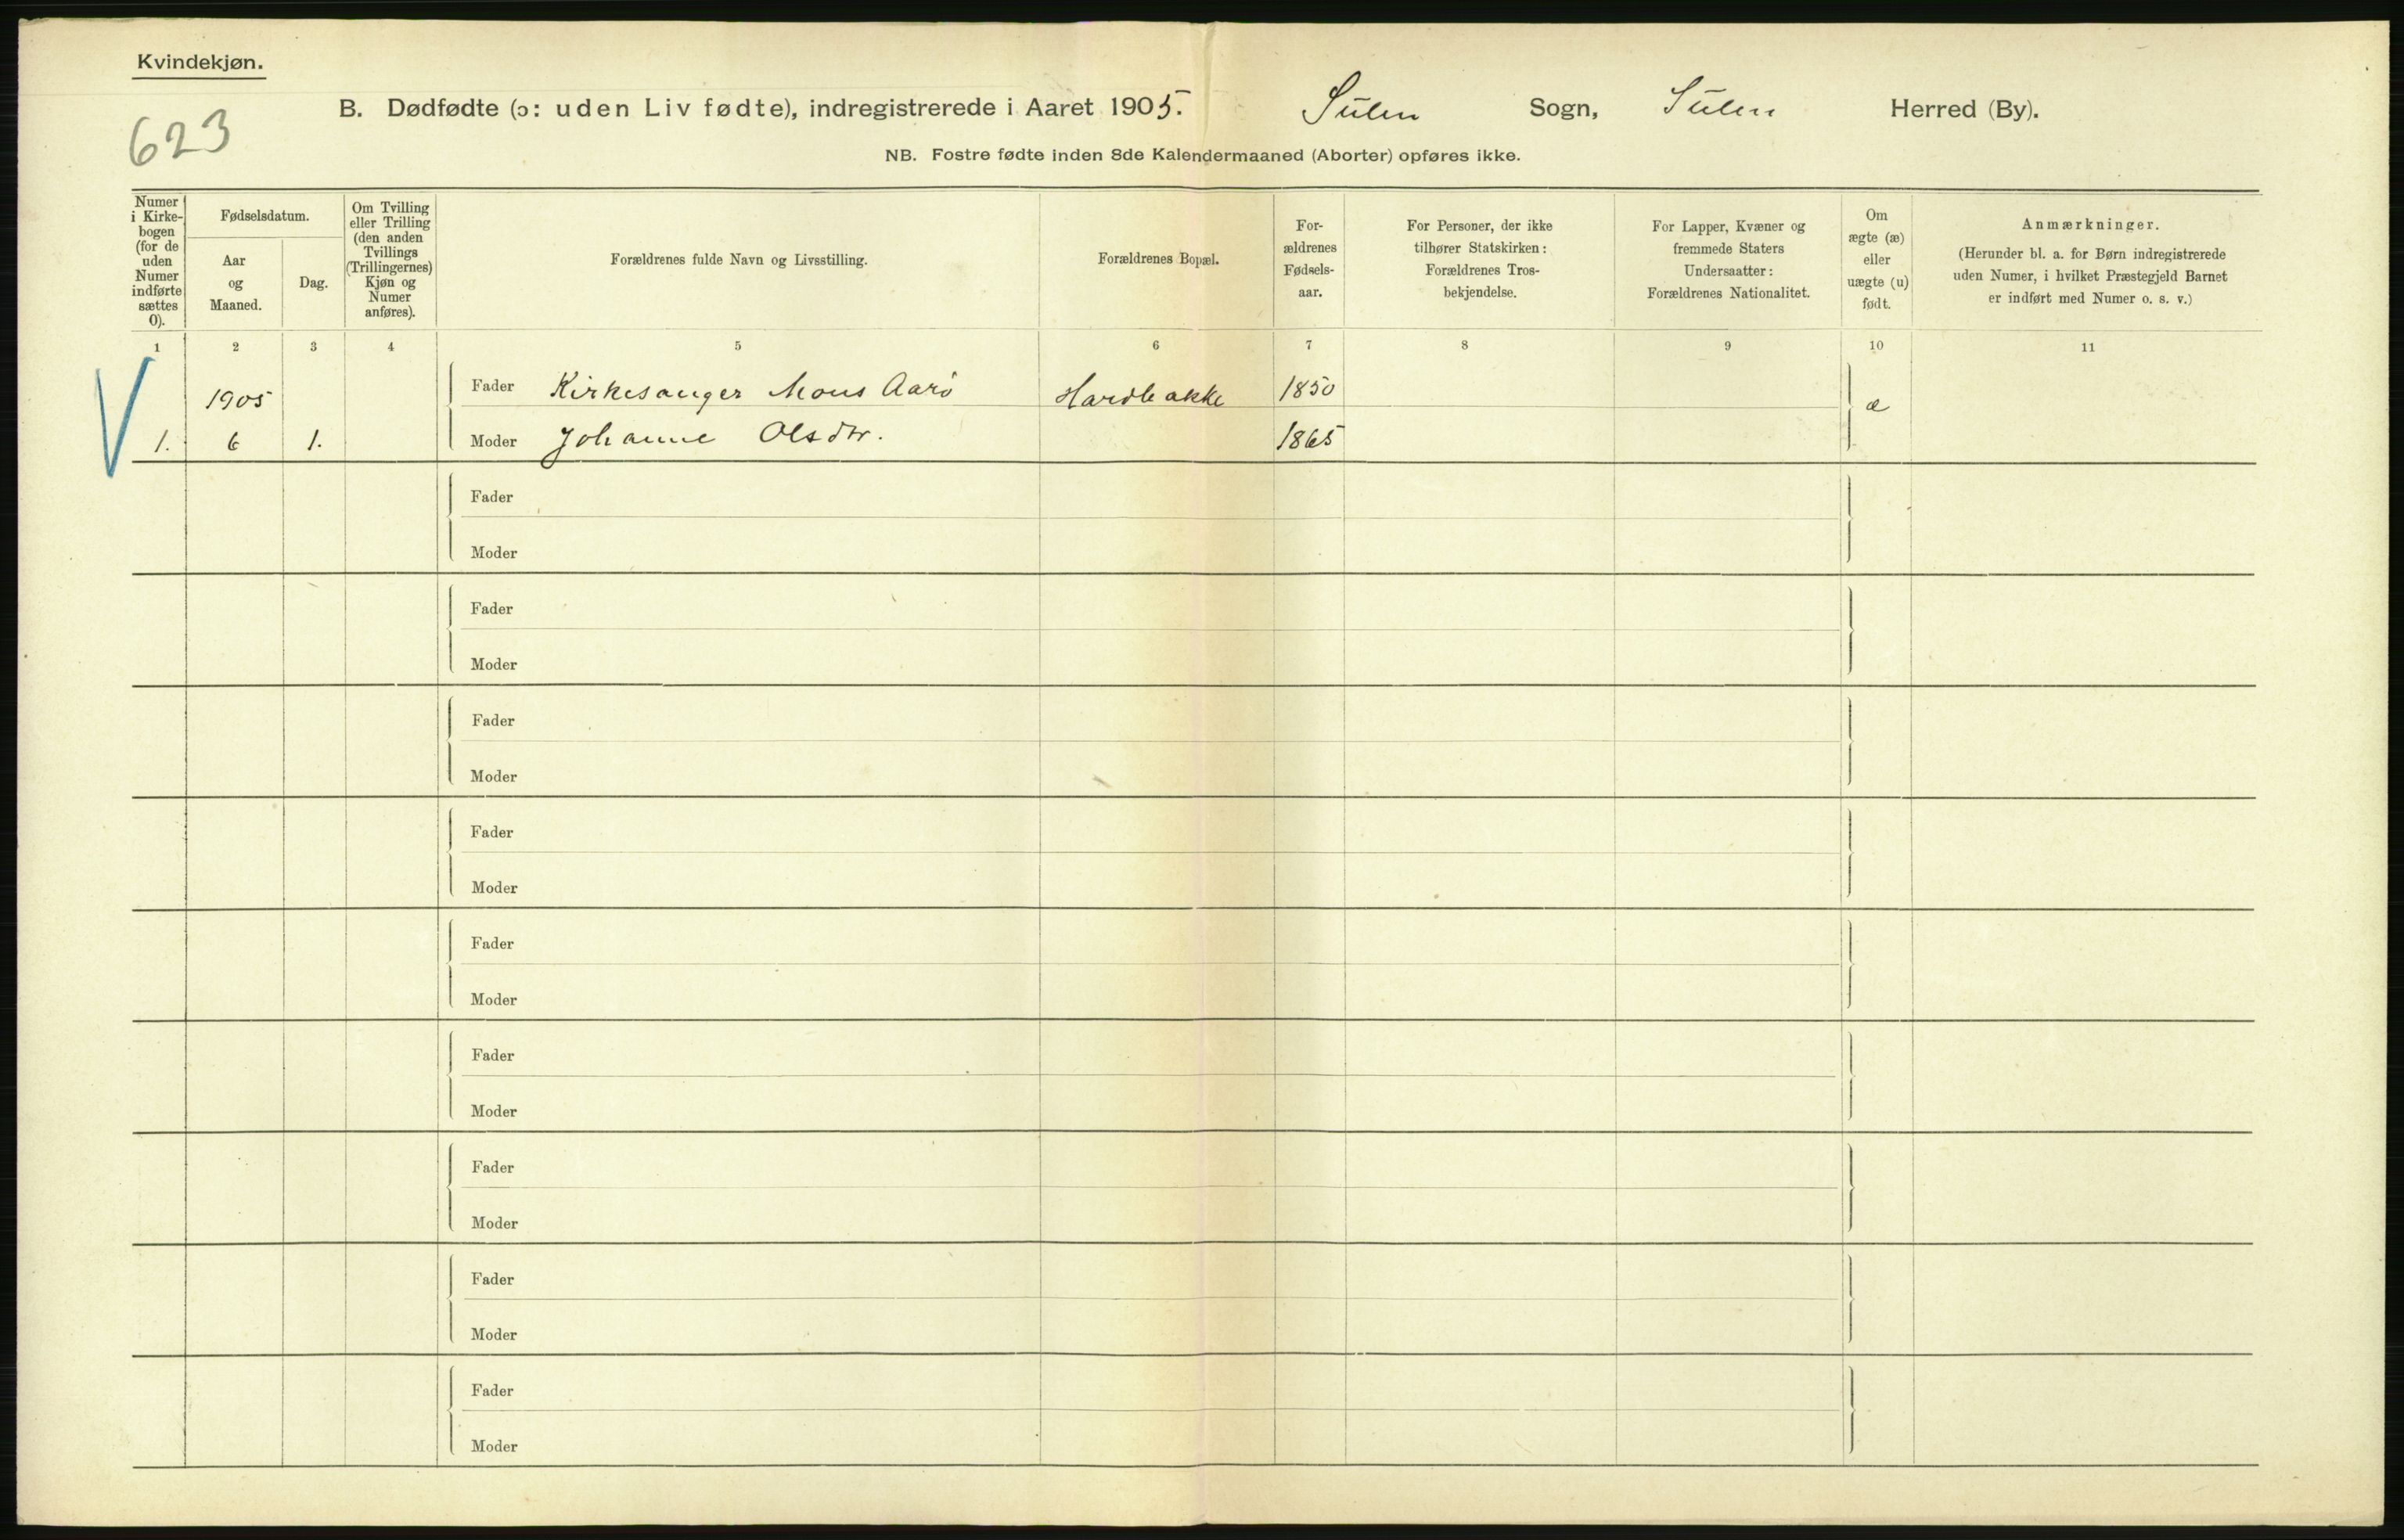 Kvindekjøn.
623
B. Dødfødte (ɔ: uden Liv fødte), indregistrerede i Aaret 1905. Sulen Sogn, Sulen Herred (By).
NB. Fostre fødte inden 8de Kalendermaaned (Aborter) opføres ikke.
Numer
i Kirke-
bogen
(for de
uden
Numer
indførte
sættes
0).
Fødselsdatum.
Aar
og
Maaned.
Dag.
Om Tvilling
eller Trilling
(den anden
Tvillings
(Trillingernes)
Kjøn og
Numer
anføres).
Forældrenes fulde Navn og Livsstilling.
Forældrenes Bopæl.
For-
ældrenes
Fødsels-
aar.
For Personer, der ikke
tilhører Statskirken:
Forældrenes Tros-
bekjendelse.
For Lapper, Kvæner og
fremmede Staters
Undersaatter:
Forældrenes Nationalitet.
Om
ægte (æ)
eller
uægte (u)
født.
Anmærkninger.
(Herunder bl. a. for Børn indregistrerede
uden Numer, i hvilket Præstegjeld Barnet
er indført med Numer o. s. v.)
1 2 3 4 5 6 7 8 9 10 11
1905 Fader Kirkesanger Mons Aarö Hardbakke 1850 æ
1. 6 1. Moder Johanne Olsdtr. 1865
Fader
Moder
Fader
Moder
Fader
Moder
Fader
Moder
Fader
Moder
Fader
Moder
Fader
Moder
Fader
Moder
Fader
Moder